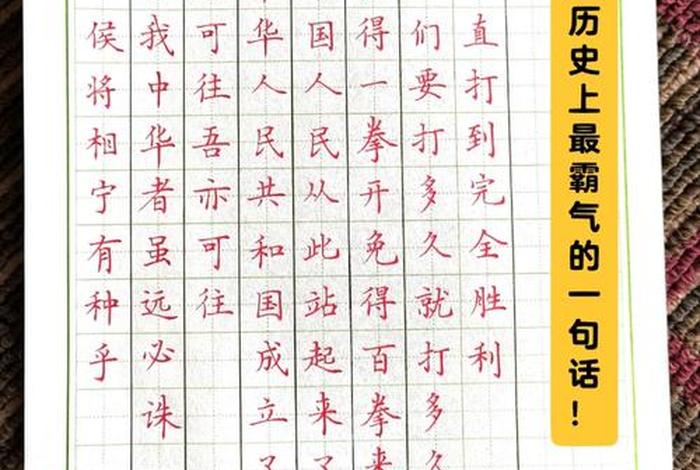 历史上最霸气的一句话!
侯将相宁有种乎
我中华者虽远必诛
可往吾亦可往
华人民共和国成立了
国人民从此站起来了
得一拳开免得百拳来
们要打多久就打多久
直打到完全胜利